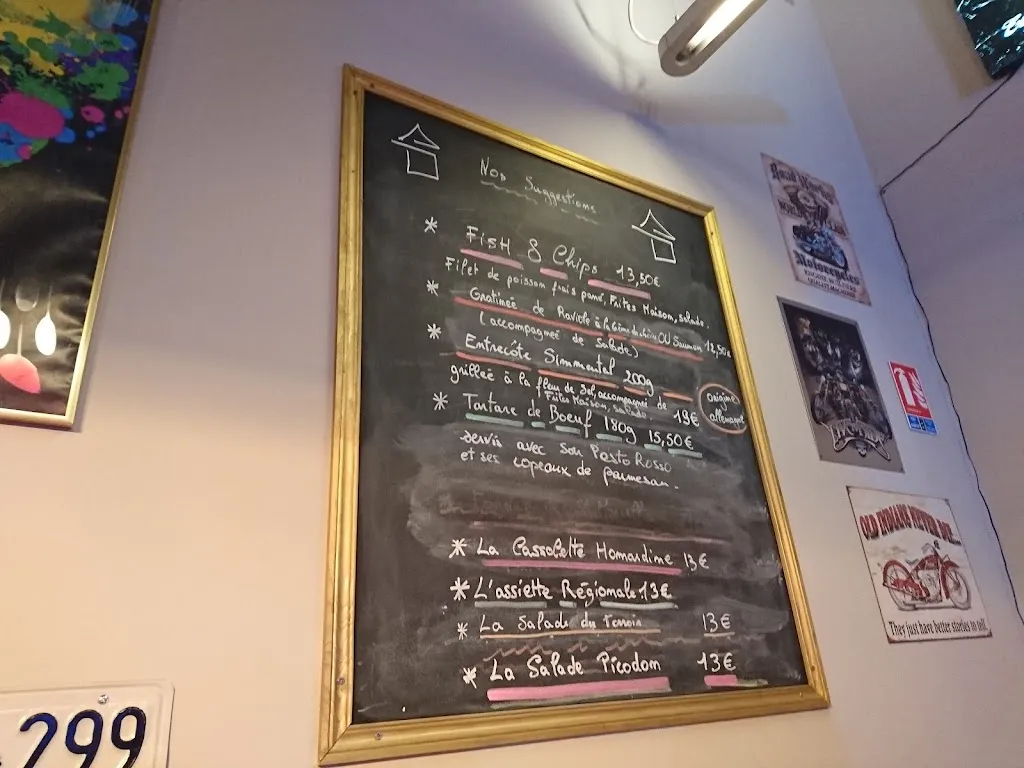 Nos Suggestions
* Fish & Chips 13,50€
Filet de poisson frais pané, Frites Maison, salade.
* Gratinée de Raviole à la Crème de chèvre OU Saumon 12,50€
(accompagnée de Salade)
* Entrecôte Simmental 200g
grillée à la fleur de Sel, accompagnée de
Frites Maison, salade 19€
origine
allemagne
* Tartare de Boeuf 180g 15,50€
servis avec son Pesto Rosso
et ses copeaux de parmesan.
* La Cassolette Homardine 13€
* L'assiette Régionale 13€
* La Salade du Terroir 13€
* La Salade Picodon 13€
Motorcycles
OLD INDIANS NEVER DIE...
They just have better stories to tell
299